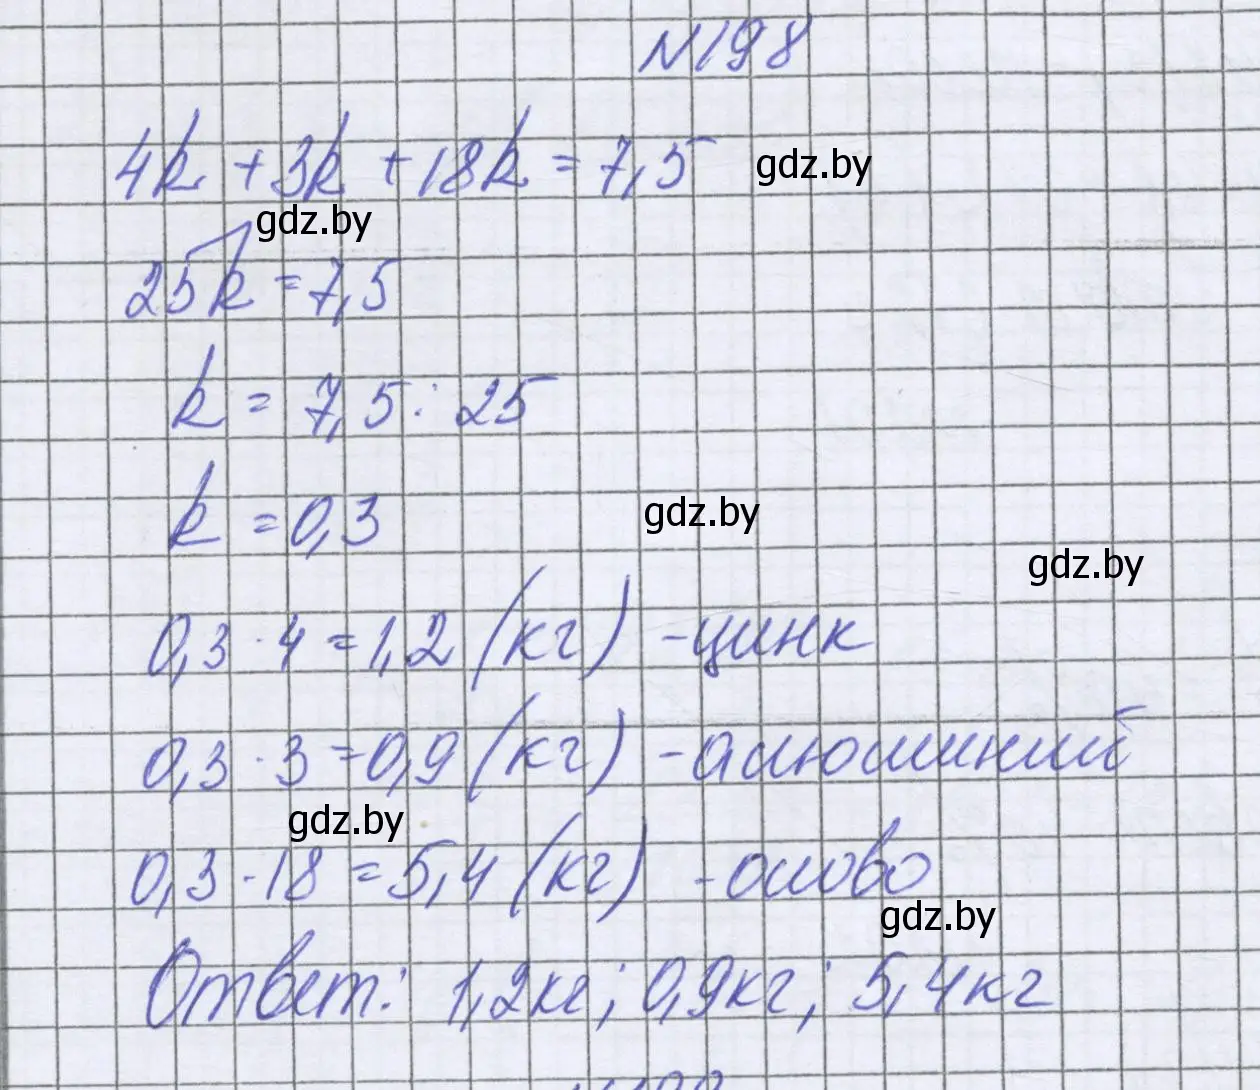 N198
4k + 3k + 18k = 7,5 gdz.by
gdz.by
25k = 7,5
k = 7,5 : 25
k = 0,3 gdz.by
gdz.by
0,3 · 4 = 1,2 (кг) - цинк
0,3 · 3 = 0,9 (кг) - алюминий
gdz.by
0,3 · 18 = 5,4 (кг) - олово
gdz.by
Ответ: 1,2кг; 0,9кг; 5,4кг